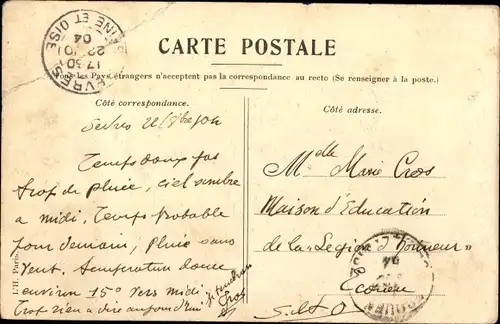 CARTE POSTALE
Tous les Pays étrangers n'acceptent pas la correspondance au recto (Se renseigner à la poste.)
Côté correspondance.
Sèvres 22/
Temps doux pas
trop de pluie, ciel sombre
a midi. Temps probable
pour demain, pluie sans
vent. Temperature douce
environ 15° vers midi
Trop rien a dire aujourd'hui
Cros
Côté adresse.
Melle Marie Cros
Maison d'Education
de la "Légion d'honneur"
Ecouen
S. et O
SEVRES
SEINE ET OISE
17 30
22
04
ECOUEN
04
I.H. Paris